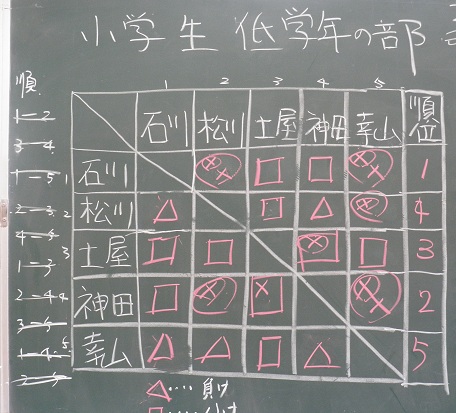 小学生 低学年の部
順
1-2
3-4
1-5
2-3
4-5
1-3
2-4
3-5
1-4
2-5
1 2 3 4 5
石川 松川 土屋 神田 幸山 順位
1 石川 1
2 松川 4
3 土屋 3
4 神田 2
5 幸山 5
△‥‥負け
□‥‥